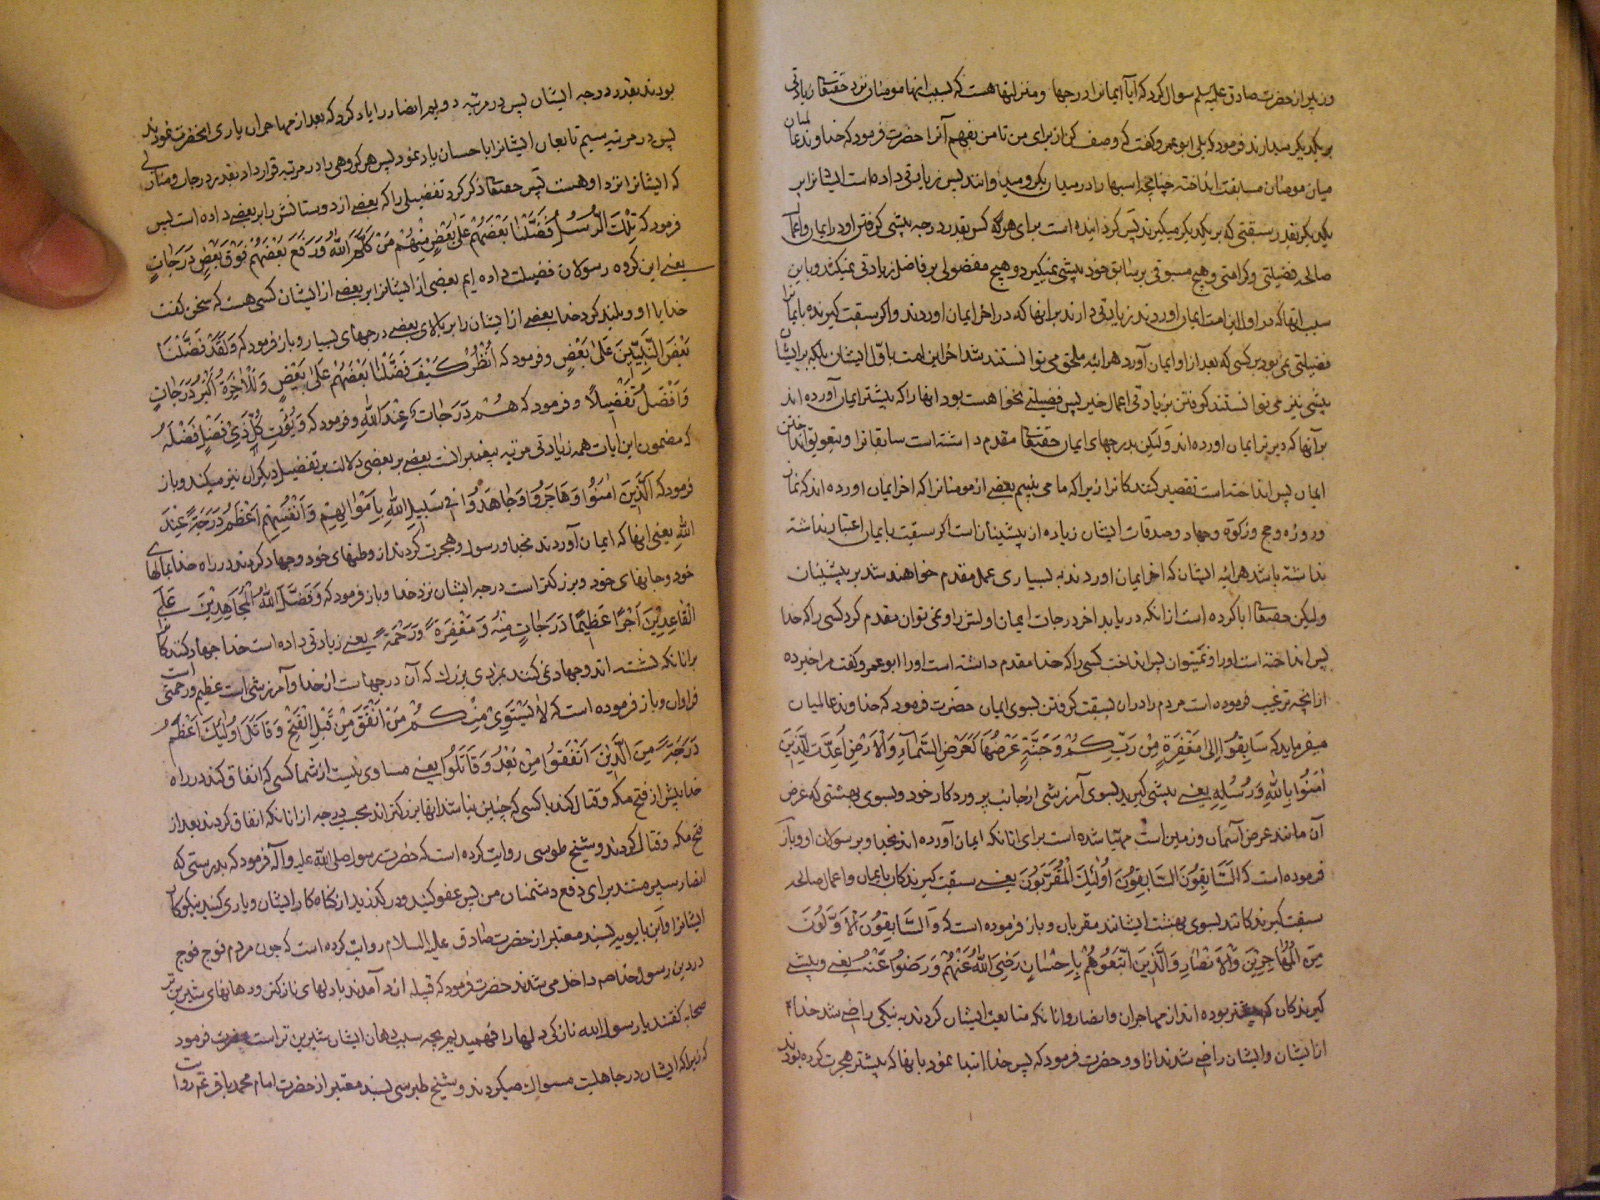 و زبیر از حضرت صادق علیه سلم سوال کرد که آیا ایمانرا درجها و منزلتها هست که بسبب آنها مومنان نزد حقتعالی زیادتی
بر یکدیگر میدارند فرمود که بلی ابو عمرو گفت که وصف کن از برای من تا من بفهم آنرا حضرت فرمود که خداوند عالمیان
میان مومنان مسابقت انداخته چنانچه اسبها را در میدان بگرو میدوانند پس زیادتی داده است ایشانرا بر
یکدیگر بقدر سبقتی که بر یکدیگر میگیرند پس گردانیده است برای هر کس بقدر درجه پیشی گرفتن او در ایمان و اعمال
صالحه فضیلتی و کرامتی و هیچ مسبوقی بر سابق خود پیشی نمیگیرد و هیچ مفضولی بر فاضل زیادتی نمیکند و باین
سبب آنها که در اول این امت ایمان اوردند زیادتی دارند بر آنها که در اخر ایمان اوردند و اگر سبقت گیرنده بایمانرا
فضیلتی نمی بود بر کسی که بعد از او ایمان آورد هر اینه ملحق می توانستند شد اخر این امت باول ایشان بلکه بر ایشان
پیشی نیز می توانستند گرفتن بزیادتی اعمال خیر پس فضیلتی نخواهست بود انها را که پیشتر ایمان آورده اند
بر آنها که دیر تر ایمان اورده اند ولیکن بدرجهای ایمان حقتعالی مقدم داشته است سابقانرا و بتعویق انداختن
ایمان پس انداخته است تقصیر کنندکانرا زیرا که ما می بینیم بعضی از مومنانرا که اخر ایمان اورده اند که نماز
و روزه و حج و زکوة و جهاد و صدقات ایشان زیاده از پیشینیانست اگر سبقت بایمان اعتبار نداشته
نداشته باشد هر اینه ایشان که اخر ایمان اوردند به بسیاری عمل مقدم خواهند شد بر پیشینان
ولیکن حقتعالی ابا کرده است از انکه دریابد اخر درجات ایمان اولش را و نمی توان مقدم کرد کسی را که خدا
پس انداخته است او را و نمیتوان پس انداخت کسی را که خدا مقدم داشته است او را ابو عمرو گفت مرا خبر ده
از انچه ترغیب فرموده است مردم را در ان بسبقت گرفتن بسوی ایمان حضرت فرمود که خداوند عالمیان
میفرماید که سَابِقُوا إِلَى مَغْفِرَةٍ مِنْ رَبِّكُمْ وَجَنَّةٍ عَرْضُهَا كَعَرْضِ السَّمَآءِ وَالْاَرْضِ اُعِدَّتْ لِلَّذِينَ
اٰمَنُوا بِاللّٰهِ وَرُسُلِهِ یعنی پیشی گیرید بسوی آمرزشی از جانب پروردکار خود و بسوی بهشتی که عرض
آن مانند عرض آسمان و زمین است مهیّا شده است برای انانکه ایمان آورده اند بخدا و برسولان او و باز
فرموده است که السَّابِقُونَ السَّابِقُونَ اُولٰئِكَ الْمُقَرَّبُونَ یعنی سبقت گیرندکان بایمان و اعمال صالحه
سبقت گیرندکانند بسوی بهشت ایشانند مقربان و باز فرموده است که وَالسَّابِقُونَ الْاَوَّلُونَ
مِنَ الْمُهَاجِرِينَ وَالْاَنْصَارِ وَالَّذِينَ اتَّبَعُوهُمْ بِاِحْسَانٍ رَضِيَ اللّٰهُ عَنْهُمْ وَرَضُوا عَنْهُ یعنی و پیشی
گیرندکان که بوده اند از مهاجران و انصار و انانکه متابعت ایشان کردند به نیکی راضی شد خدا
از ایشان و ایشان راضی شدند از او و حضرت فرمود که پس خدا ابتدا نمود بانها که پیشتر هجرت کرده بودند
بودند بقدر درجه ایشان پس در مرتبه دویم انصار را یاد کرد که بعد از مهاجران یاری انحضرت نمودند
پس در مرتبه سیم تابعان ایشانرا باحسان یاد نمود پس هر گروهی را در مرتبه قرار داد بقدر درجات و منازلی
که ایشانرا نزد او هست پس حقتعالی ذکر کرد تفضیلی را که بعضی از دوستانش را بر بعضی داده است پس
فرمود که تِلْكَ الرُّسُلُ فَضَّلْنَا بَعْضَهُمْ عَلٰى بَعْضٍ مِنْهُمْ مَنْ كَلَّمَ اللّٰهُ وَرَفَعَ بَعْضَهُمْ فَوْقَ بَعْضٍ دَرَجَاتٍ
یعنی این کروه رسولان فضیلت داده ایم بعضی از ایشانرا بر بعضی از ایشان کسی هست که سخن گفت
خدا با او و بلند کرد خدا بعضی از ایشان را بر بالای بعضی درجهای بسیار و باز فرمود که وَلَقَدْ فَضَّلْنَا
بَعْضَ النَّبِيِّينَ عَلٰى بَعْضٍ و فرمود که اُنْظُرْ كَيْفَ فَضَّلْنَا بَعْضَهُمْ عَلٰى بَعْضٍ وَلَلْاٰخِرَةُ اَكْبَرُ دَرَجَاتٍ
وَاَفْضَلُ تَفْضِيلًا و فرمود که هُمْ دَرَجَاتٌ عِنْدَ اللّٰهِ و فرمود که وَيُؤْتِ كُلَّ ذِي فَضْلٍ فَضْلَهُ
که مضمون این آیات همه زیادتی مرتبه پیغمبرانست بعضی بر بعضی و دلالت بر تفضیل دیکران نیز میکند و باز
فرمود که اَلَّذِينَ اٰمَنُوا وَهَاجَرُوا وَجَاهَدُوا فِي سَبِيلِ اللّٰهِ بِاَمْوَالِهِمْ وَاَنْفُسِهِمْ اَعْظَمُ دَرَجَةً عِنْدَ
اللّٰهِ یعنی انها که ایمان آوردند بخدا و رسول و هجرت کردند از وطنهای خود و جهاد کردند در راه خدا بمالهای
خود و جانهای خود بزرکتر است درجه ایشان نزد خدا و باز فرمود که وَفَضَّلَ اللّٰهُ الْمُجَاهِدِينَ عَلَى
الْقَاعِدِينَ اَجْرًا عَظِيمًا دَرَجَاتٍ مِنْهُ وَمَغْفِرَةً وَرَحْمَةً یعنی زیادتی داده است خدا جهاد کنندکانرا
بر انانکه نشسته اند و جهاد نمی کنند بمزدی بزرك که آن درجهاست از خدا و آمرزشی است عظیم و رحمتی است
فراوان و باز فرموده است که لَا يَسْتَوِي مِنْكُمْ مَنْ اَنْفَقَ مِنْ قَبْلِ الْفَتْحِ وَقَاتَلَ اُولٰئِكَ اَعْظَمُ
دَرَجَةً مِنَ الَّذِينَ اَنْفَقُوا مِنْ بَعْدُ وَقَاتَلُوا یعنی مساوی نیست از شما کسی که انفاق کند در راه
خدا پیش از فتح مکه و قتال کند با کسی که چنین نباشد انها بزرکتراند بحسب درجه از انانکه انفاق کردند بعد از
فتح مکه و قتال کردند و شیخ طوسی روایت کرده است که حضرت رسول صلی الله علیه و آله فرمود که بدرستی که
انصار سپر منند برای دفع دشمنان من پس عفو کنید و در کذرید از کناه کار ایشان و یاری کنید نیکوکار
ایشانرا و ابن بابویه بسند معتبر از حضرت صادق علیه السلام روایت کرده است که چون مردم فوج فوج
در دین رسول خدا ص داخل می شدند حضرت فرمود که قبیله ازد آمدند با دلهای نازکتر و دهانهای شیرین تر
صحابه گفتند یا رسول الله نازکی دلها را فهمیدیم بچه سبب دهان ایشان شیرین تر است حضرت فرمود
که زیرا که ایشان در جاهلیت مسواك میکردند و شیخ طبرسی بسند معتبر از حضرت امام محمد باقر ع روایت